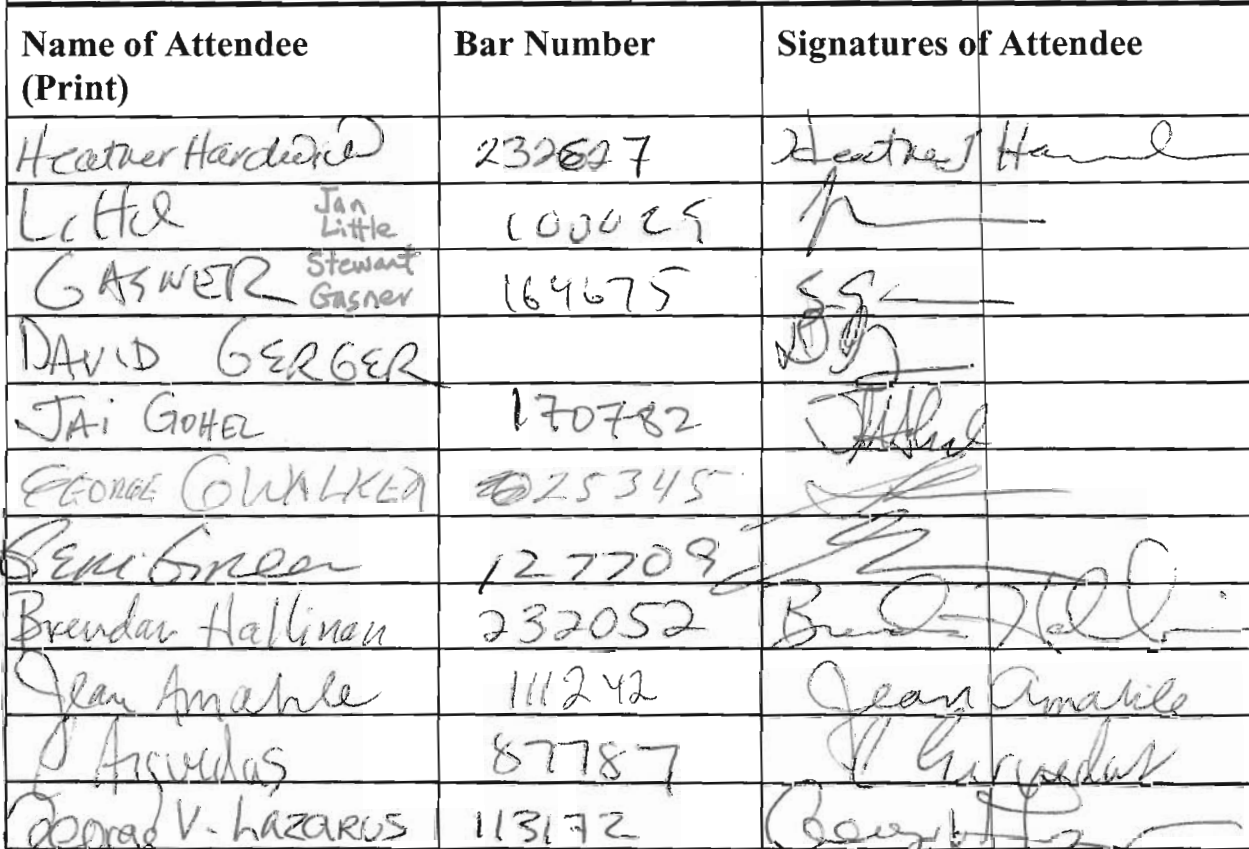 Name of Attendee (Print) Bar Number Signatures of Attendee
Heather Hardwick 232627 Heather J
Little Jan Little 100029
GASNER Stewart Gasner 164675
DAVID GERGER
JAi GOHEL 170782
GEORGE G WALKER 025345
Geri Green 127709
Brendan Hallinan 232052
Jean Amabile 111242 Jean Amabile
Arguedas 87787 Arguedas
V. LAZARUS 113172